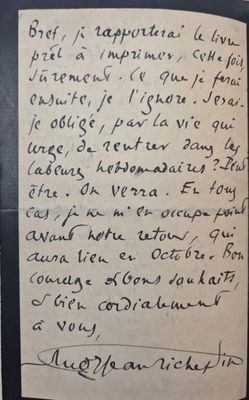 Bref, je rapporterai le livre
prêt à imprimer, cette fois,
sûrement. Ce que je ferai
ensuite, je l'ignore. Serai-
je obligé, par la vie qui
urge, de rentrer dans les
labeurs hebdomadaires ? Peut
être. On verra. En tous
cas, je ne m'en occupe point
avant notre retour, qui
aura lieu en Octobre. Bon
courage & bons souhaits,
& bien cordialement
à vous,
Jean Richepin